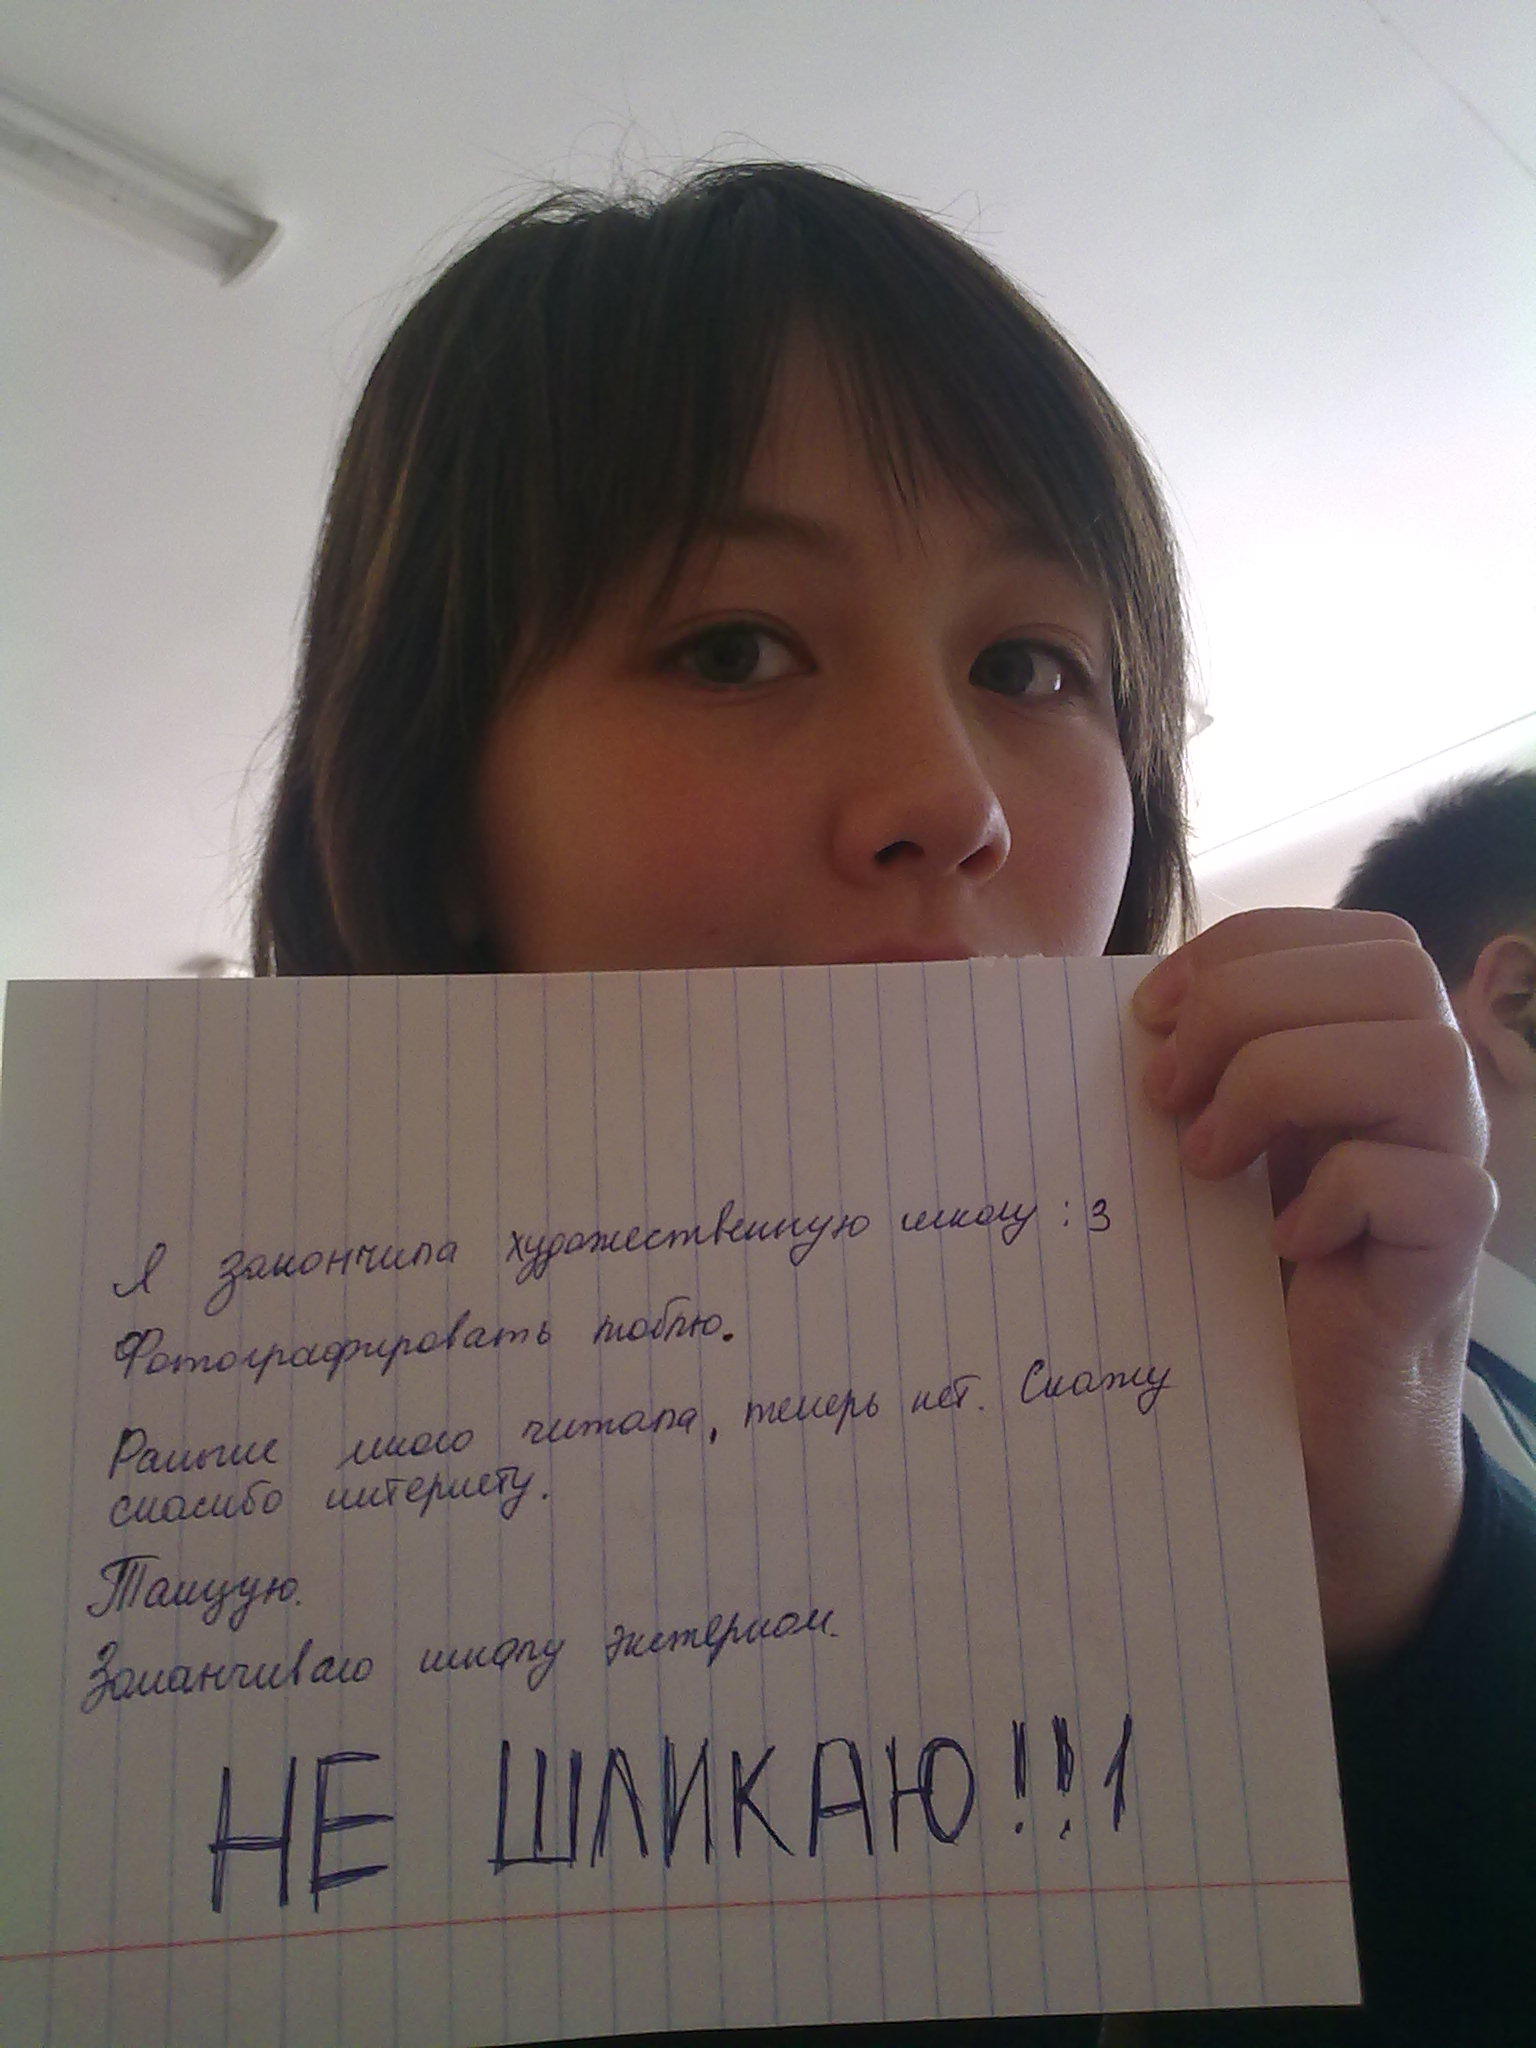 Я закончила художественную школу :3
Фотографировать люблю.
Раньше много читала, теперь нет. Скажу
спасибо интернету.
Танцую.
Заканчиваю школу экстерном.
НЕ ШЛИКАЮ!!!1